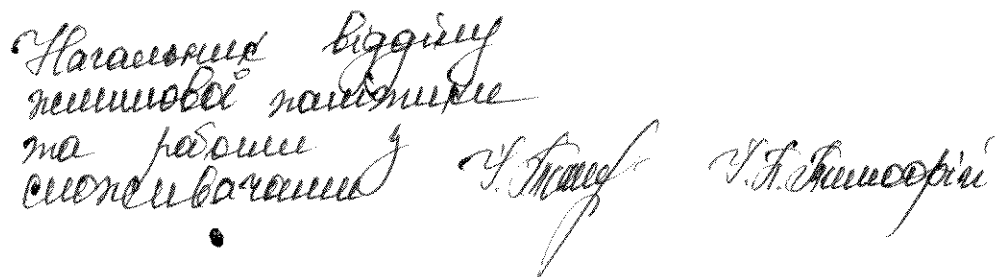 Начальник відділу
житлової політики
та роботи з
споживачами І.П. Тимофій